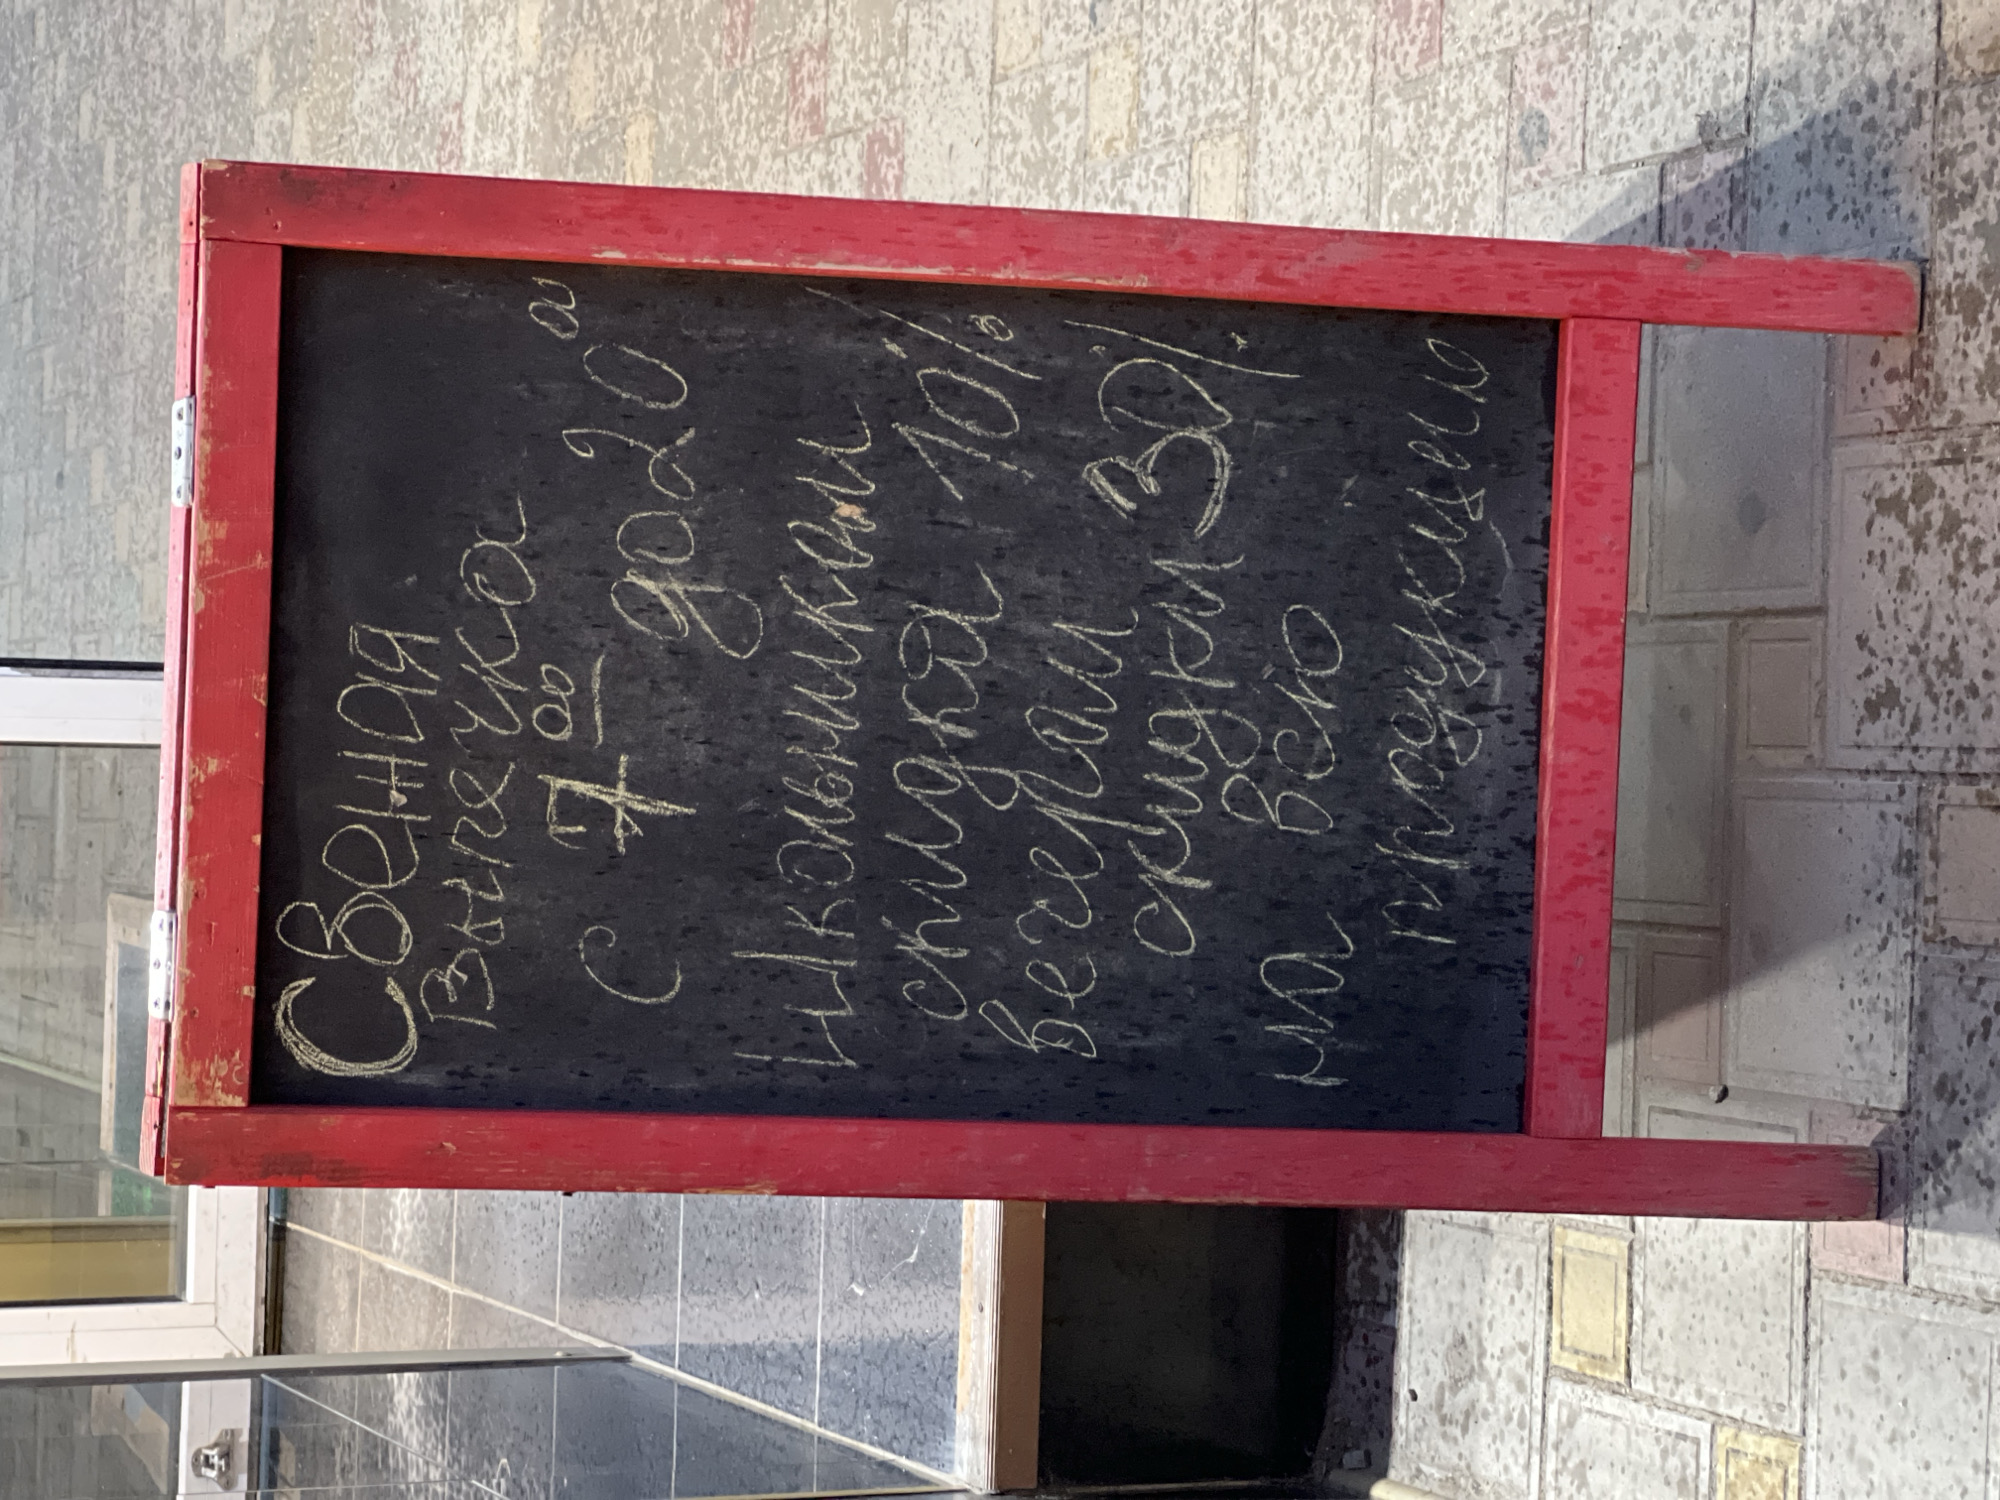 Свежая
выпечка
с 7⁰⁰ до 20⁰⁰
школьникам
скидка 10%
вечерам
скидки 30%
на всю
продукцию